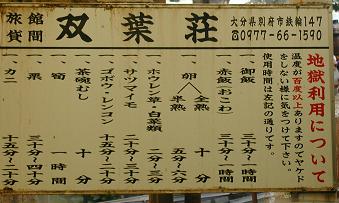 旅館
貸間
双葉荘
大分県別府市鉄輪147
☎0977-66-1590
地獄利用について
温度が百度以上ありますのでヤケド
をしない様に気をつけて下さい。
使用時間は左記の通りです。
一、御飯 三十分
一、赤飯(おこわ) 三十分〜一時間
一、卵 全熟 十分
半熟 五分〜六分
一、ホウレン草・白菜類 二分〜三分
一、サツマイモ 二十分〜三十分
一、ゴボウ・レンコン 十五分〜二十分
一、茶碗むし 十分
一、筍 一時間
一、栗 三十分〜四十分
一、カニ 十五分〜二十分